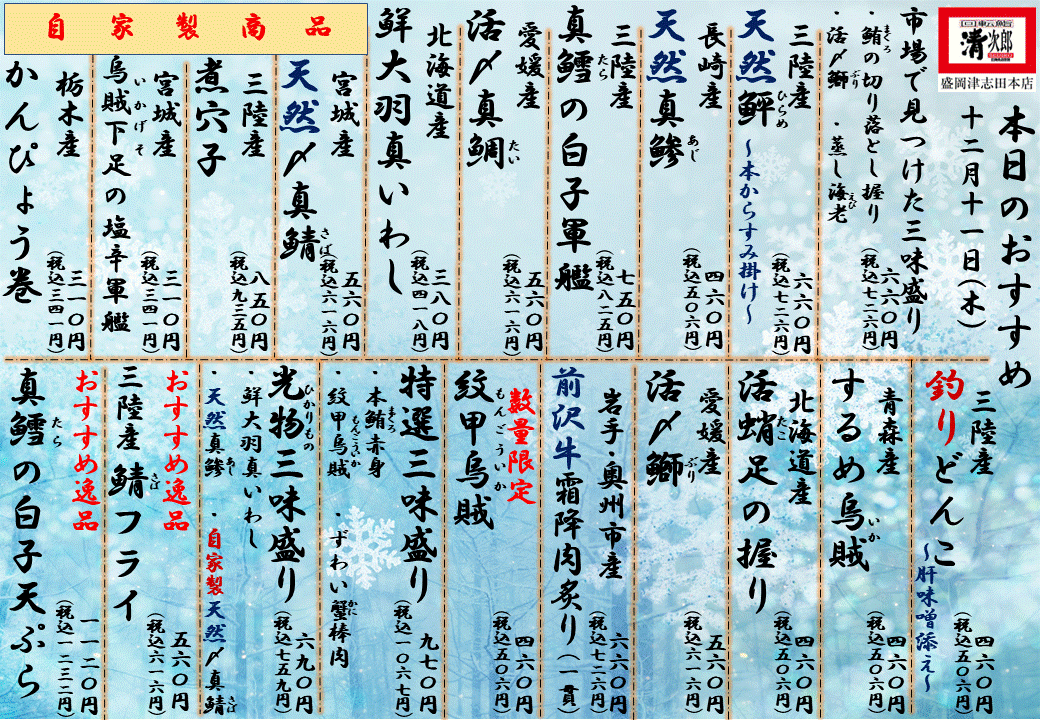 回転鮨
清次郎
盛岡津志田本店
本日のおすすめ
十二月十一日(木)
市場で見つけた三味盛り
・鮪の切り落とし握り
まぐろ
・活〆鰤 ・蒸し海老
ぶり
えび
六六〇円
(税込七二六円)
三陸産
天然鮃
ひらめ
~本からすみ掛け~
六六〇円
(税込七二六円)
長崎産
天然真鯵
あじ
四六〇円
(税込五〇六円)
三陸産
真鱈の白子軍艦
たら
七五〇円
(税込八二五円)
愛媛産
活〆真鯛
たい
五六〇円
(税込六一六円)
北海道産
鮮大羽真いわし
三八〇円
(税込四一八円)
自家製商品
宮城産
天然〆真鯖
さば
五六〇円
(税込六一六円)
三陸産
煮穴子
八五〇円
(税込九三五円)
宮城産
烏賊下足の塩辛軍艦
いかげそ
三一〇円
(税込三四一円)
栃木産
かんぴょう巻
三一〇円
(税込三四一円)
三陸産
釣りどんこ
~肝味噌添え~
四六〇円
(税込五〇六円)
青森産
するめ烏賊
いか
四六〇円
(税込五〇六円)
北海道産
活蛸足の握り
たこ
四六〇円
(税込五〇六円)
愛媛産
活〆鰤
ぶり
五六〇円
(税込六一六円)
岩手・奥州市産
前沢牛霜降肉炙り(一貫)
六六〇円
(税込七二六円)
数量限定
紋甲烏賊
もんごういか
四六〇円
(税込五〇六円)
特選三味盛り
・本鮪赤身
まぐろ
・紋甲烏賊 ・ずわい蟹棒肉
もんごういか
かに
九七〇円
(税込一〇六七円)
光物三味盛り
ひかりもの
・鮮大羽真いわし
・天然真鯵 ・自家製天然〆真鯖
あじ
さば
六九〇円
(税込七五九円)
おすすめ逸品
三陸産 鯖フライ
さば
五六〇円
(税込六一六円)
おすすめ逸品
真鱈の白子天ぷら
たら
一一二〇円
(税込一二三二円)